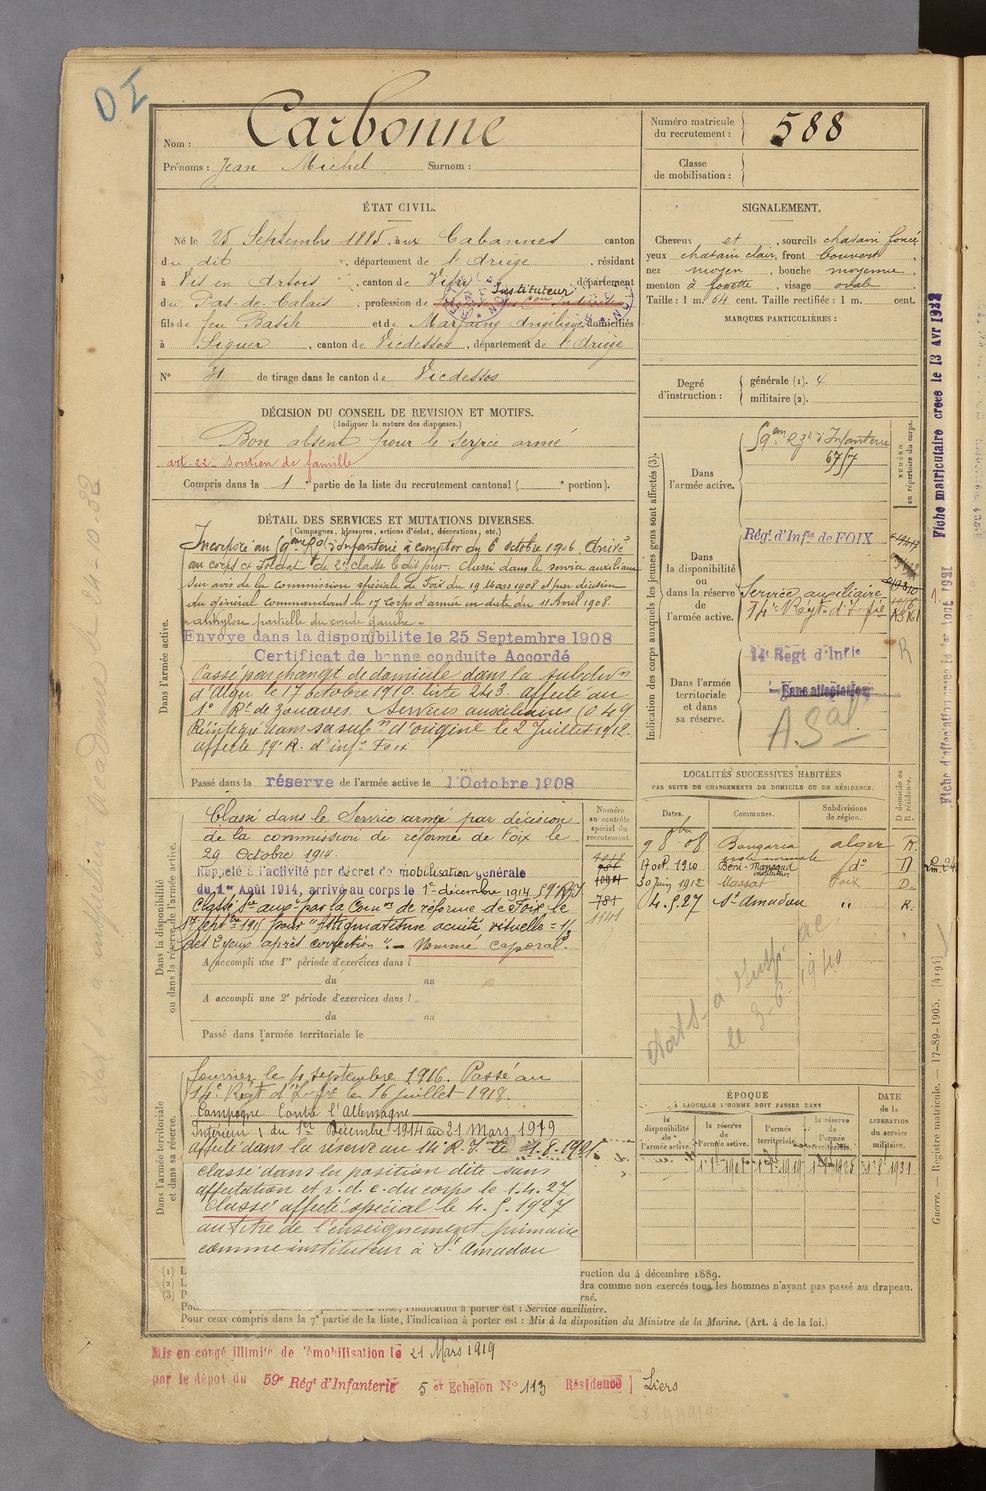 Nom : Carbonne
Prénoms : Jean Michel Surnom :
Numéro matricule du recrutement : 588
Classe de mobilisation :
ÉTAT CIVIL.
Né le 25 Septembre 1885, aux Cabannes canton
du dit, département de l'Ariège, résidant
à Vis en Artois, canton de Vitry, département
du Pas-de-Calais, profession de Instituteur
fils de feu Basile et de Marfaing Angélique, domiciliés
à Siguer, canton de Vicdessos, département de l'Ariège
N° 31 de tirage dans le canton de Vicdessos
SIGNALEMENT.
Cheveux et, sourcils chatain foncé
yeux chatain clair, front Couvert,
nez moyen, bouche moyenne,
menton à fossette, visage ovale.
Taille : 1 m. 64 cent. Taille rectifiée : 1 m. cent.
MARQUES PARTICULIÈRES :
Degré d'instruction : générale (1). 4
militaire (2).
DÉCISION DU CONSEIL DE REVISION ET MOTIFS.
(Indiquer la nature des dispenses.)
Bon absent pour le service armé
art. 22. Soutien de famille
Compris dans la 1e partie de la liste du recrutement cantonal ( e portion).
DÉTAIL DES SERVICES ET MUTATIONS DIVERSES.
(Campagnes, blessures, actions d'éclat, décorations, etc.)
Dans l'armée active.
Incorporé au 59eme Rgt d'infanterie à compter du 6 octobre 1906. Arrivé
au corps et Soldat de 2e classe le dit jour. Classé dans le service auxiliaire
sur avis de la Commission spéciale de Foix du 19 Mars 1908 et par décision
du général Commandant le 17 Corps d'armée en date du 11 Avril 1908.
ankylose partielle du coude gauche
Envoyé dans la disponibilité le 25 Septembre 1908
Certificat de bonne conduite Accordé
Passé par changt de domicile dans la subdivon
d'Alger le 17 octobre 1910. liste 243. affecté au
1er Rt de Zouaves. Services auxiliaires
Réintégré dans sa subon d'origine le 2 Juillet 1912.
affecté 59e R. d'infie Foix
Passé dans la réserve de l'armée active le 1er Octobre 1908
Indication des corps auxquels les jeunes gens sont affectés (3).
NUMÉRO au répertoire du corps.
Dans l'armée active.
59eme Rgt d'Infanterie
Dans la disponibilité ou dans la réserve de l'armée active.
Régt d'Infie de FOIX
Service auxiliaire
14e Régt d'Infie
Dans l'armée territoriale et dans sa réserve.
14 Régt d'Infie
Sans affectation
Dans la disponibilité ou dans la réserve de l'armée active.
Classé dans le Service armé par décision
de la commission de réforme de Foix le
29 Octobre 1914.
Rappelé à l'activité par décret de mobilisation générale
du 1er Août 1914, arrivé au corps le 1er décembre 1914 59e RI
Classé Sce auxre par la Comon de réforme de Foix le
1er septbre 1915 pour "Astigmatisme acuité visuelle = 1/3
des 2 yeux après correction". Nommé caporal
A accompli une 1re période d'exercices dans l
du au
A accompli une 2e période d'exercices dans l
du au
Passé dans l'armée territoriale le
Numéro au contrôle spécial du recrutement.
LOCALITÉS SUCCESSIVES HABITÉES
PAR SUITE DE CHANGEMENTS DE DOMICILE OU DE RÉSIDENCE.
Dates. Communes. Subdivisions de région. D domicile ou R résidence.
9 8bre 08 Bouzaréa école normale alger R.
17 oct. 1910 Beni-Mansour instituteur do D
30 Juin 1912 Massat Foix D.
4.5.27 St Amadou " R.
le 3-6-1940
Dans l'armée territoriale et dans sa réserve.
fourrier le 4 septembre 1916. Passé au
14e Régt d'Infie le 16 juillet 1918.
Campagne Contre l'Allemagne
Intérieur, du 1er Décembre 1914 au 21 Mars 1919
affecté dans la réserve au 14e R.I. le 1.8.1921
classé dans la position dite sans
affectation et r.d.c. du corps le 1.4.27
Classé affecté spécial le 4.5.1927
au titre de l'enseignement primaire
comme instituteur à St Amadou
ÉPOQUE
À LAQUELLE L'HOMME DOIT PASSER DANS
la disponibilité de l'armée active.
la réserve de l'armée active.
l'armée territoriale.
la réserve de l'armée territoriale.
DATE de la LIBÉRATION du service militaire.
(1) L
(2) L
(3) P
ruction du 4 décembre 1889.
dra comme non exercés tous les hommes n'ayant pas passé au drapeau.
rné.
l'indication à porter est : Service auxiliaire.
Pour ceux compris dans la 7e partie de la liste, l'indication à porter est : Mis à la disposition du Ministre de la Marine. (Art. 4 de la loi.)
Mis en congé illimité de démobilisation le 21 Mars 1919
par le dépôt du 59e Régt d'Infanterie 5 er Echelon N° 113 Résidence Siguer
Fiche matriculaire créée le 13 Avr 1932
Guerre. — Registre matricule. — 17-89-1905. [4194]